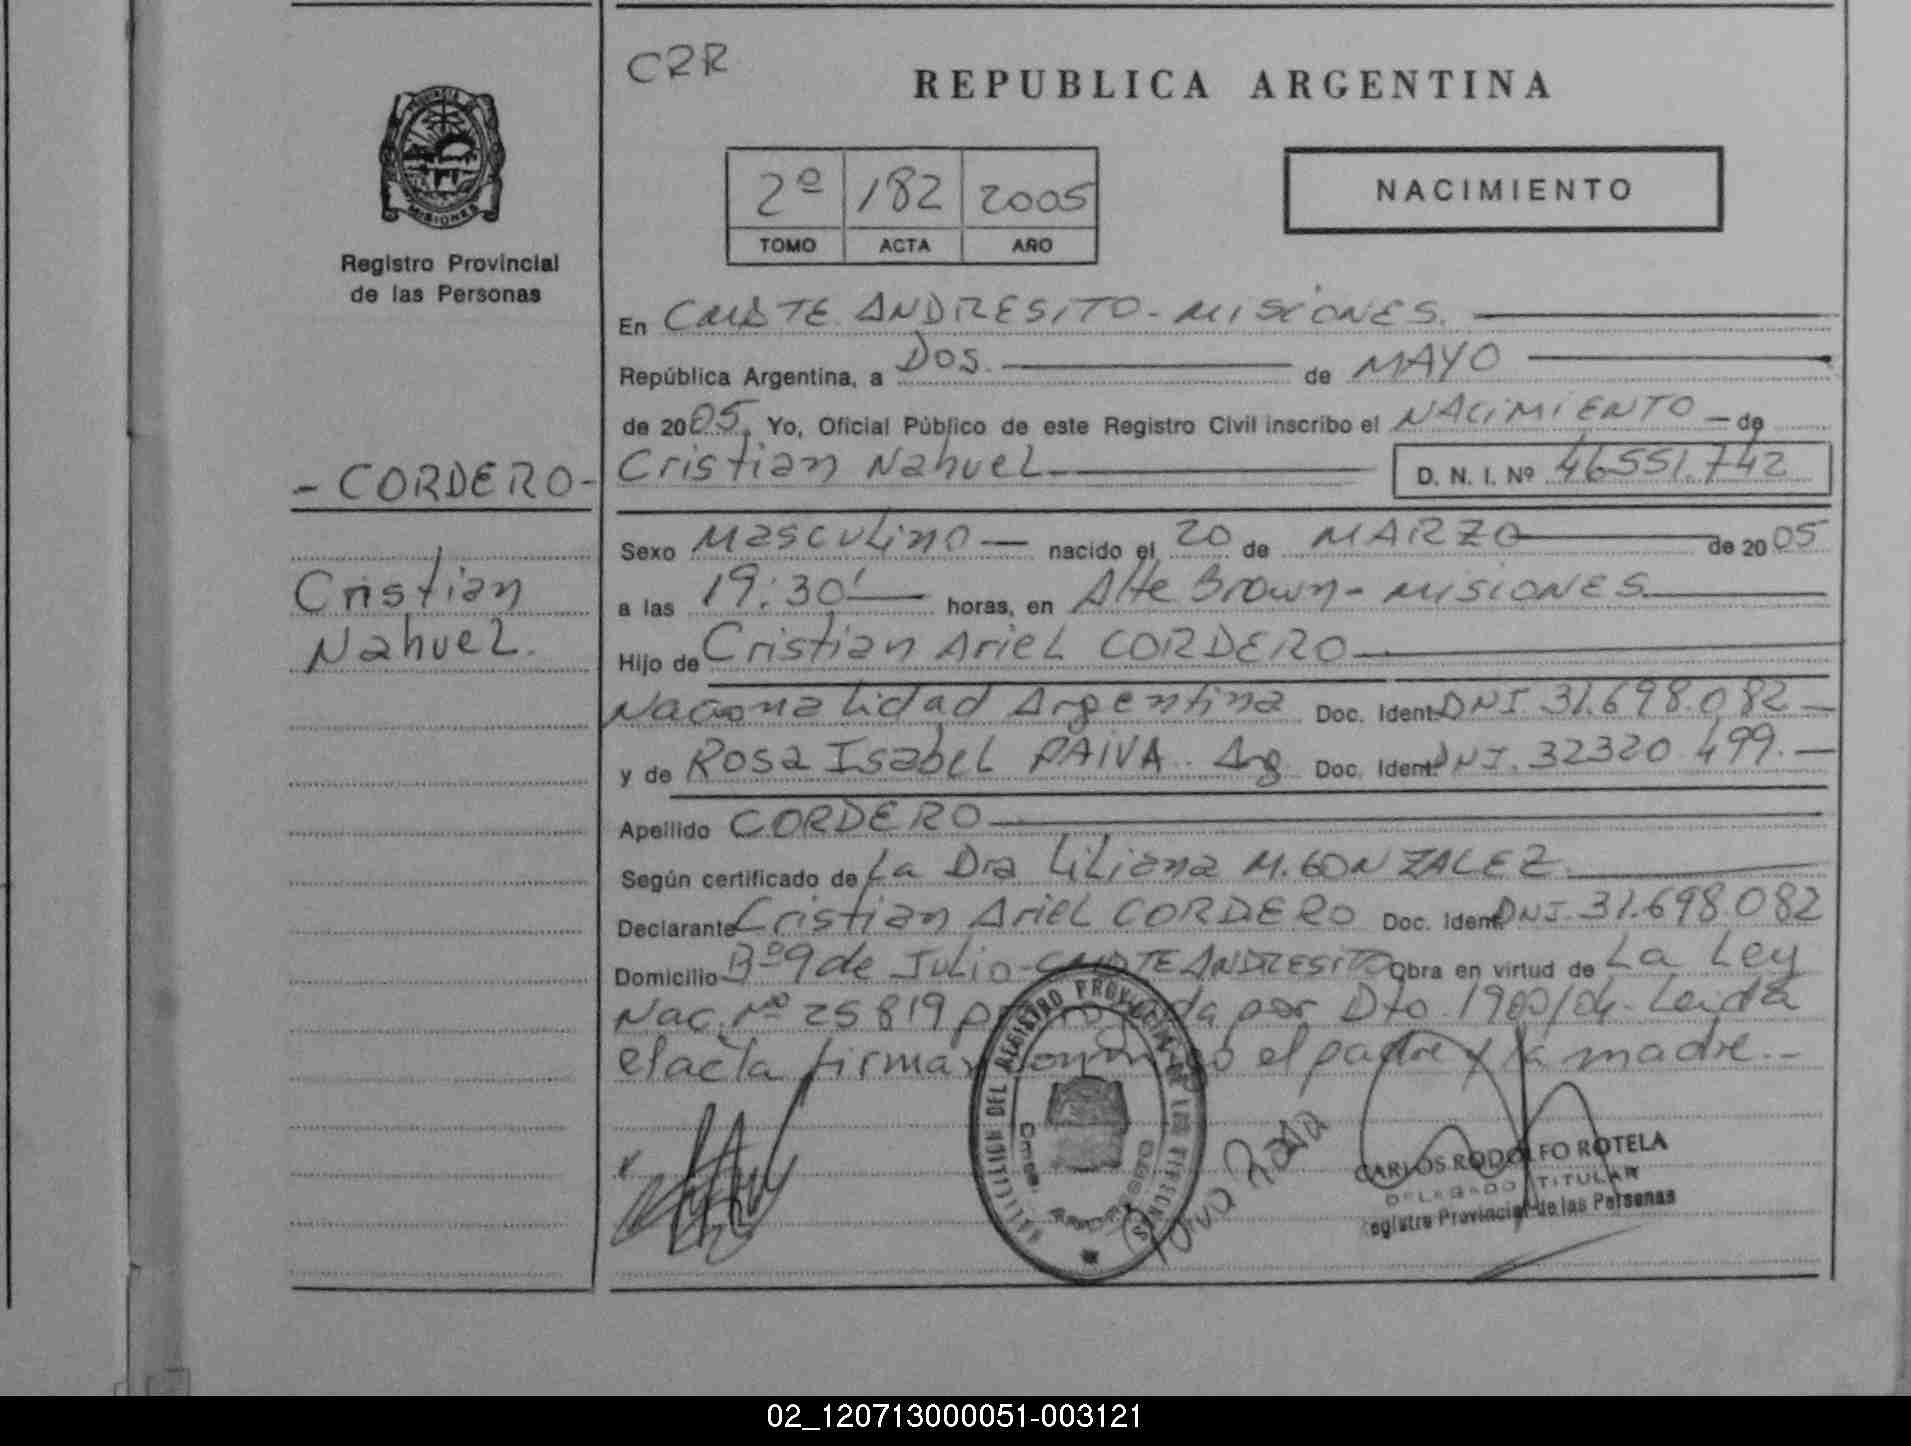 CRR
REPUBLICA ARGENTINA
PROVINCIA DE
MISIONES
Registro Provincial
de las Personas
2º 182 2005
TOMO ACTA AÑO
NACIMIENTO
En CMDTE ANDRESITO - MISIONES.
República Argentina, a DOS. de MAYO
de 2005. Yo, Oficial Público de este Registro Civil inscribo el NACIMIENTO - de
- CORDERO -
Cristian Nahuel D. N. I. Nº 46551.742
Cristian
Nahuel.
Sexo Masculino nacido el 20 de MARZO de 2005
a las 19:30' horas, en Alte Brown - MISIONES
Hijo de Cristian Ariel CORDERO
Nacionalidad Argentina Doc. Ident. DNI 31.698.082 -
y de Rosa Isabel PAIVA. Arg Doc. Ident. DNI. 32320 499. -
Apellido CORDERO
Según certificado de La Dra Liliana M. GONZALEZ
Declarante Cristian Ariel CORDERO Doc. Ident. DNI. 31.698.082
Domicilio Bº 9 de Julio - CMDTE ANDRESITO Obra en virtud de La Ley
Nac. Nº 25819 por Dto. 1900/04. Leida
el acta firman el padre y la madre. -
DELEGACION DEL REGISTRO PROVINCIAL DE LAS PERSONAS
Paiva Rosa
CARLOS RODOLFO ROTELA
DELEGADO TITULAR
Registro Provincial de las Personas
02_120713000051-003121